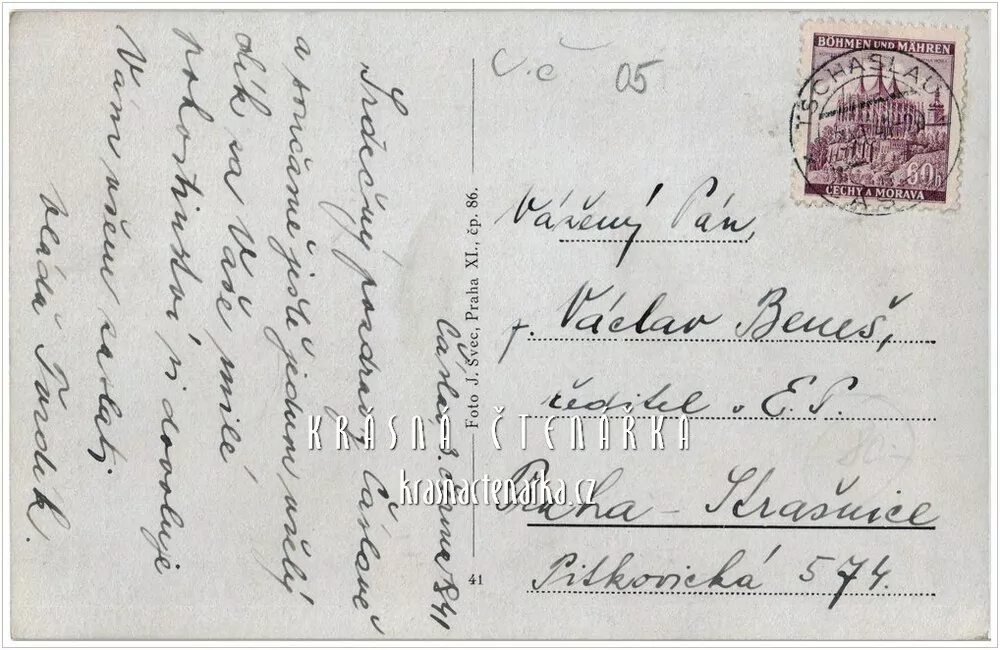 Čáslav, 3. června 1941
Srdečný pozdrav z Čáslavě
a současně ještě jednou vřelý
dík za Vaše milé
pohostinství si dovoluje
Vám všem zaslati
Vláda Turek.
Foto J. Švec, Praha XI., čp. 86.
41
V.č
05
BÖHMEN UND MÄHREN
60h
ČECHY A MORAVA
TSCHASLAU
ČÁS
Vážený Pán,
p. Václav Beneš,
ředitel v E.P.
Praha - Strašnice
Pitkovická 574.
80,-
KRÁSNÁ ČTENÁŘKA
krasnactenarka.cz